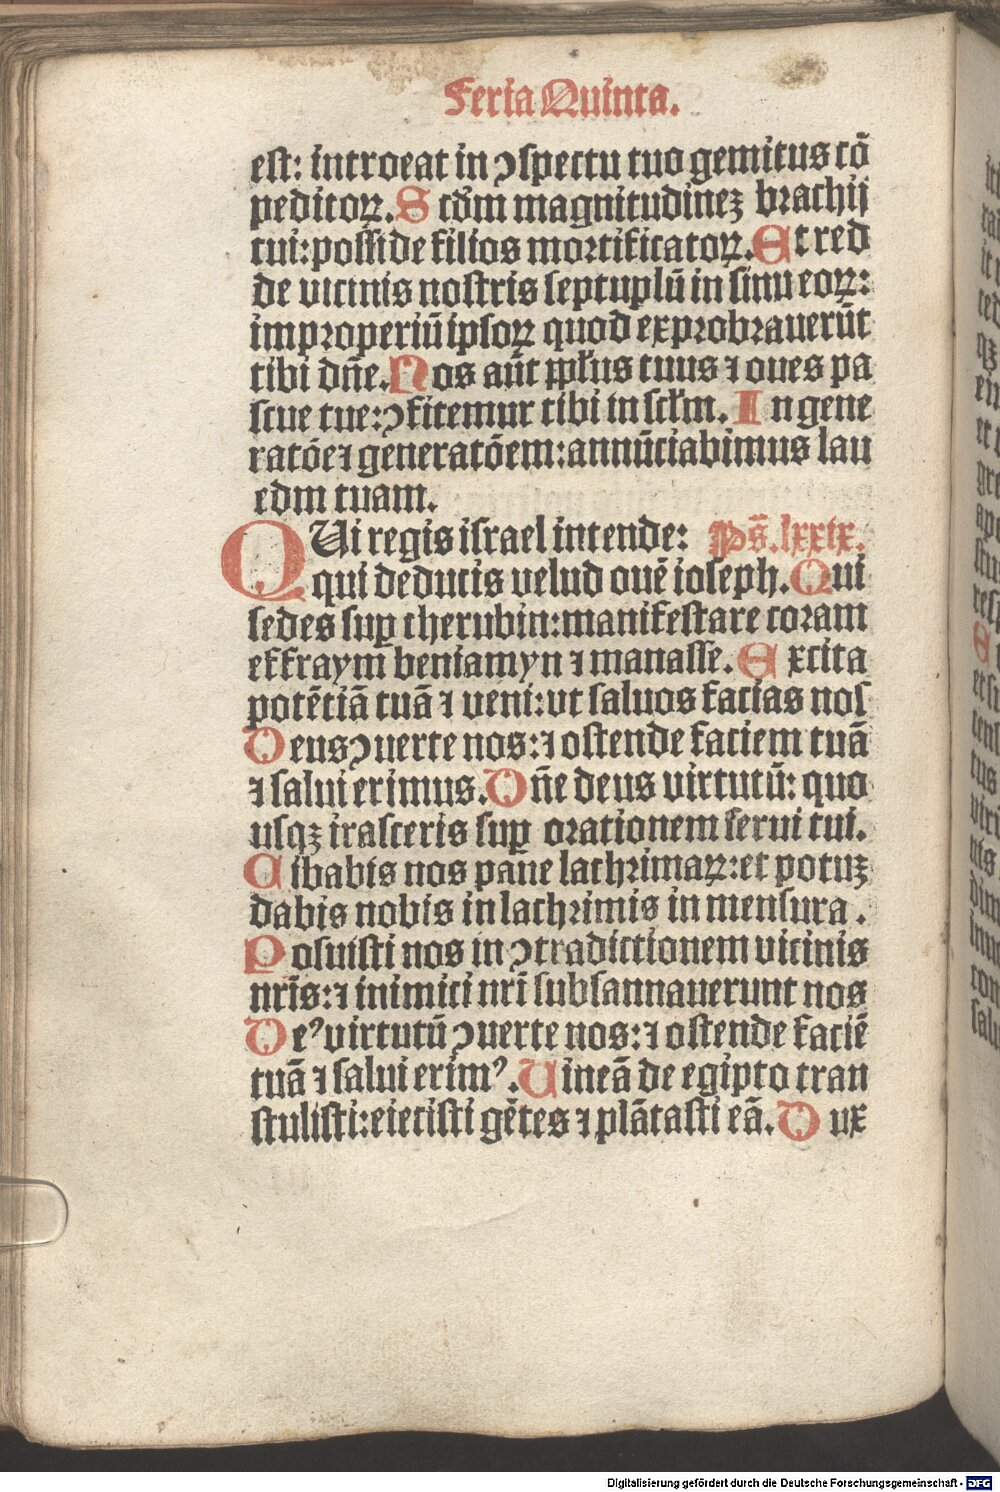 Feria Quinta.
est: introeat in ꝯspectu tuo gemitus cō
peditoꝝ. Scd̄m magnitudineꝫ brachij
tui: posside filios mortificatoꝝ. Et red
de vicinis nostris septuplū in sinu eoꝝ:
improperiū ipsoꝝ quod exprobrauerūt
tibi dn̄e. Nos aūt ppl̄us tuus ⁊ oues pa
scue tue: ꝯfitemur tibi in scl̄m. In gene
ratōe ⁊ generatōem: annūciabimus lau
edm tuam.
QUi regis israel intende: Ps̄. lxxix.
qui deducis velud ouē ioseph. Qui
sedes suꝑ cherubin: manifestare coram
effraym beniamyn ⁊ manasse. Excita
potētiā tuā ⁊ veni: vt saluos facias nos
Deus ꝯuerte nos: ⁊ ostende faciem tuā
⁊ salui erimus. Dn̄e deus virtutū: quo
usqꝫ irasceris suꝑ orationem serui tui.
Cibabis nos pane lachrimaꝝ: et potuꝫ
dabis nobis in lachrimis in mensura.
Posuisti nos in ꝯtradictionem vicinis
nr̄is: ⁊ inimici nr̄i subsannauerunt nos
Deꝰ virtutū ꝯuerte nos: ⁊ ostende faciē
tuā ⁊ salui erimꝰ. Uineā de egipto tran
stulisti: eiecisti gētes ⁊ plātasti eā. Dux
Digitalisierung gefördert durch die Deutsche Forschungsgemeinschaft - DFG